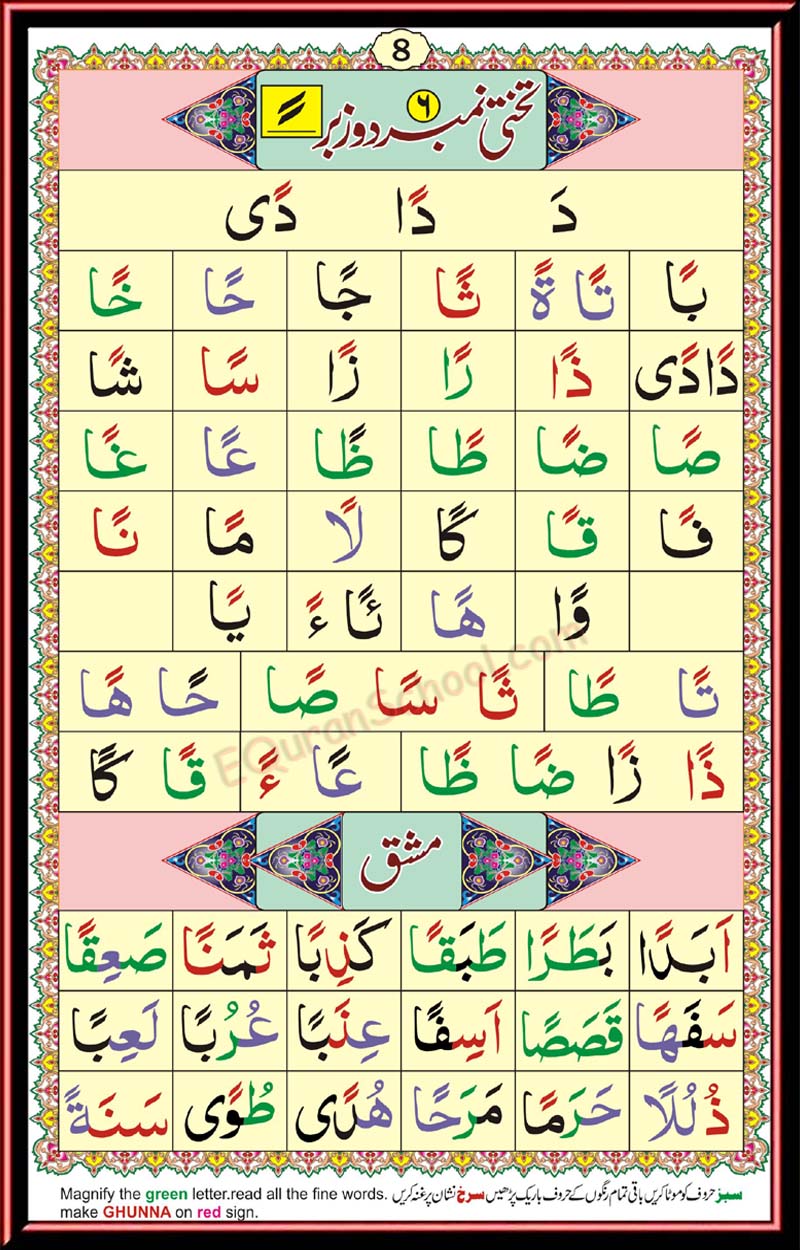 8
تختی نمبر ۶ دو زبر ً
دَ دًا دًی
بًا تًا ةً ثًا جًا حًا خًا
دًا دًی ذًا رًا زًا سًا شًا
صًا ضًا طًا ظًا عًا غًا
فًا قًا گًا لًا مًا نًا
وًا ھًا ئًا ءً یًا
تًا طًا ثًا سًا صًا حًا ھًا
ذًا زًا ضًا ظًا عًا ءً قًا گًا
مشق
اَبَدًا بَطَرًا طَبَقًا كَذِبًا ثَمَنًا صَعِقًا
سَفَهًا قَصَصًا اَسِفًا عِنَبًا عُرُبًا لَعِبًا
ذُلُلًا حَرَمًا مَرَحًا هُدًی طُوًی سَنَةً
سبز حروف کو موٹا کریں باقی تمام رنگوں کے حروف باریک پڑھیں سرخ نشان پر غنہ کریں
Magnify the green letter.read all the fine words.
make GHUNNA on red sign.
EQuranSchool.com